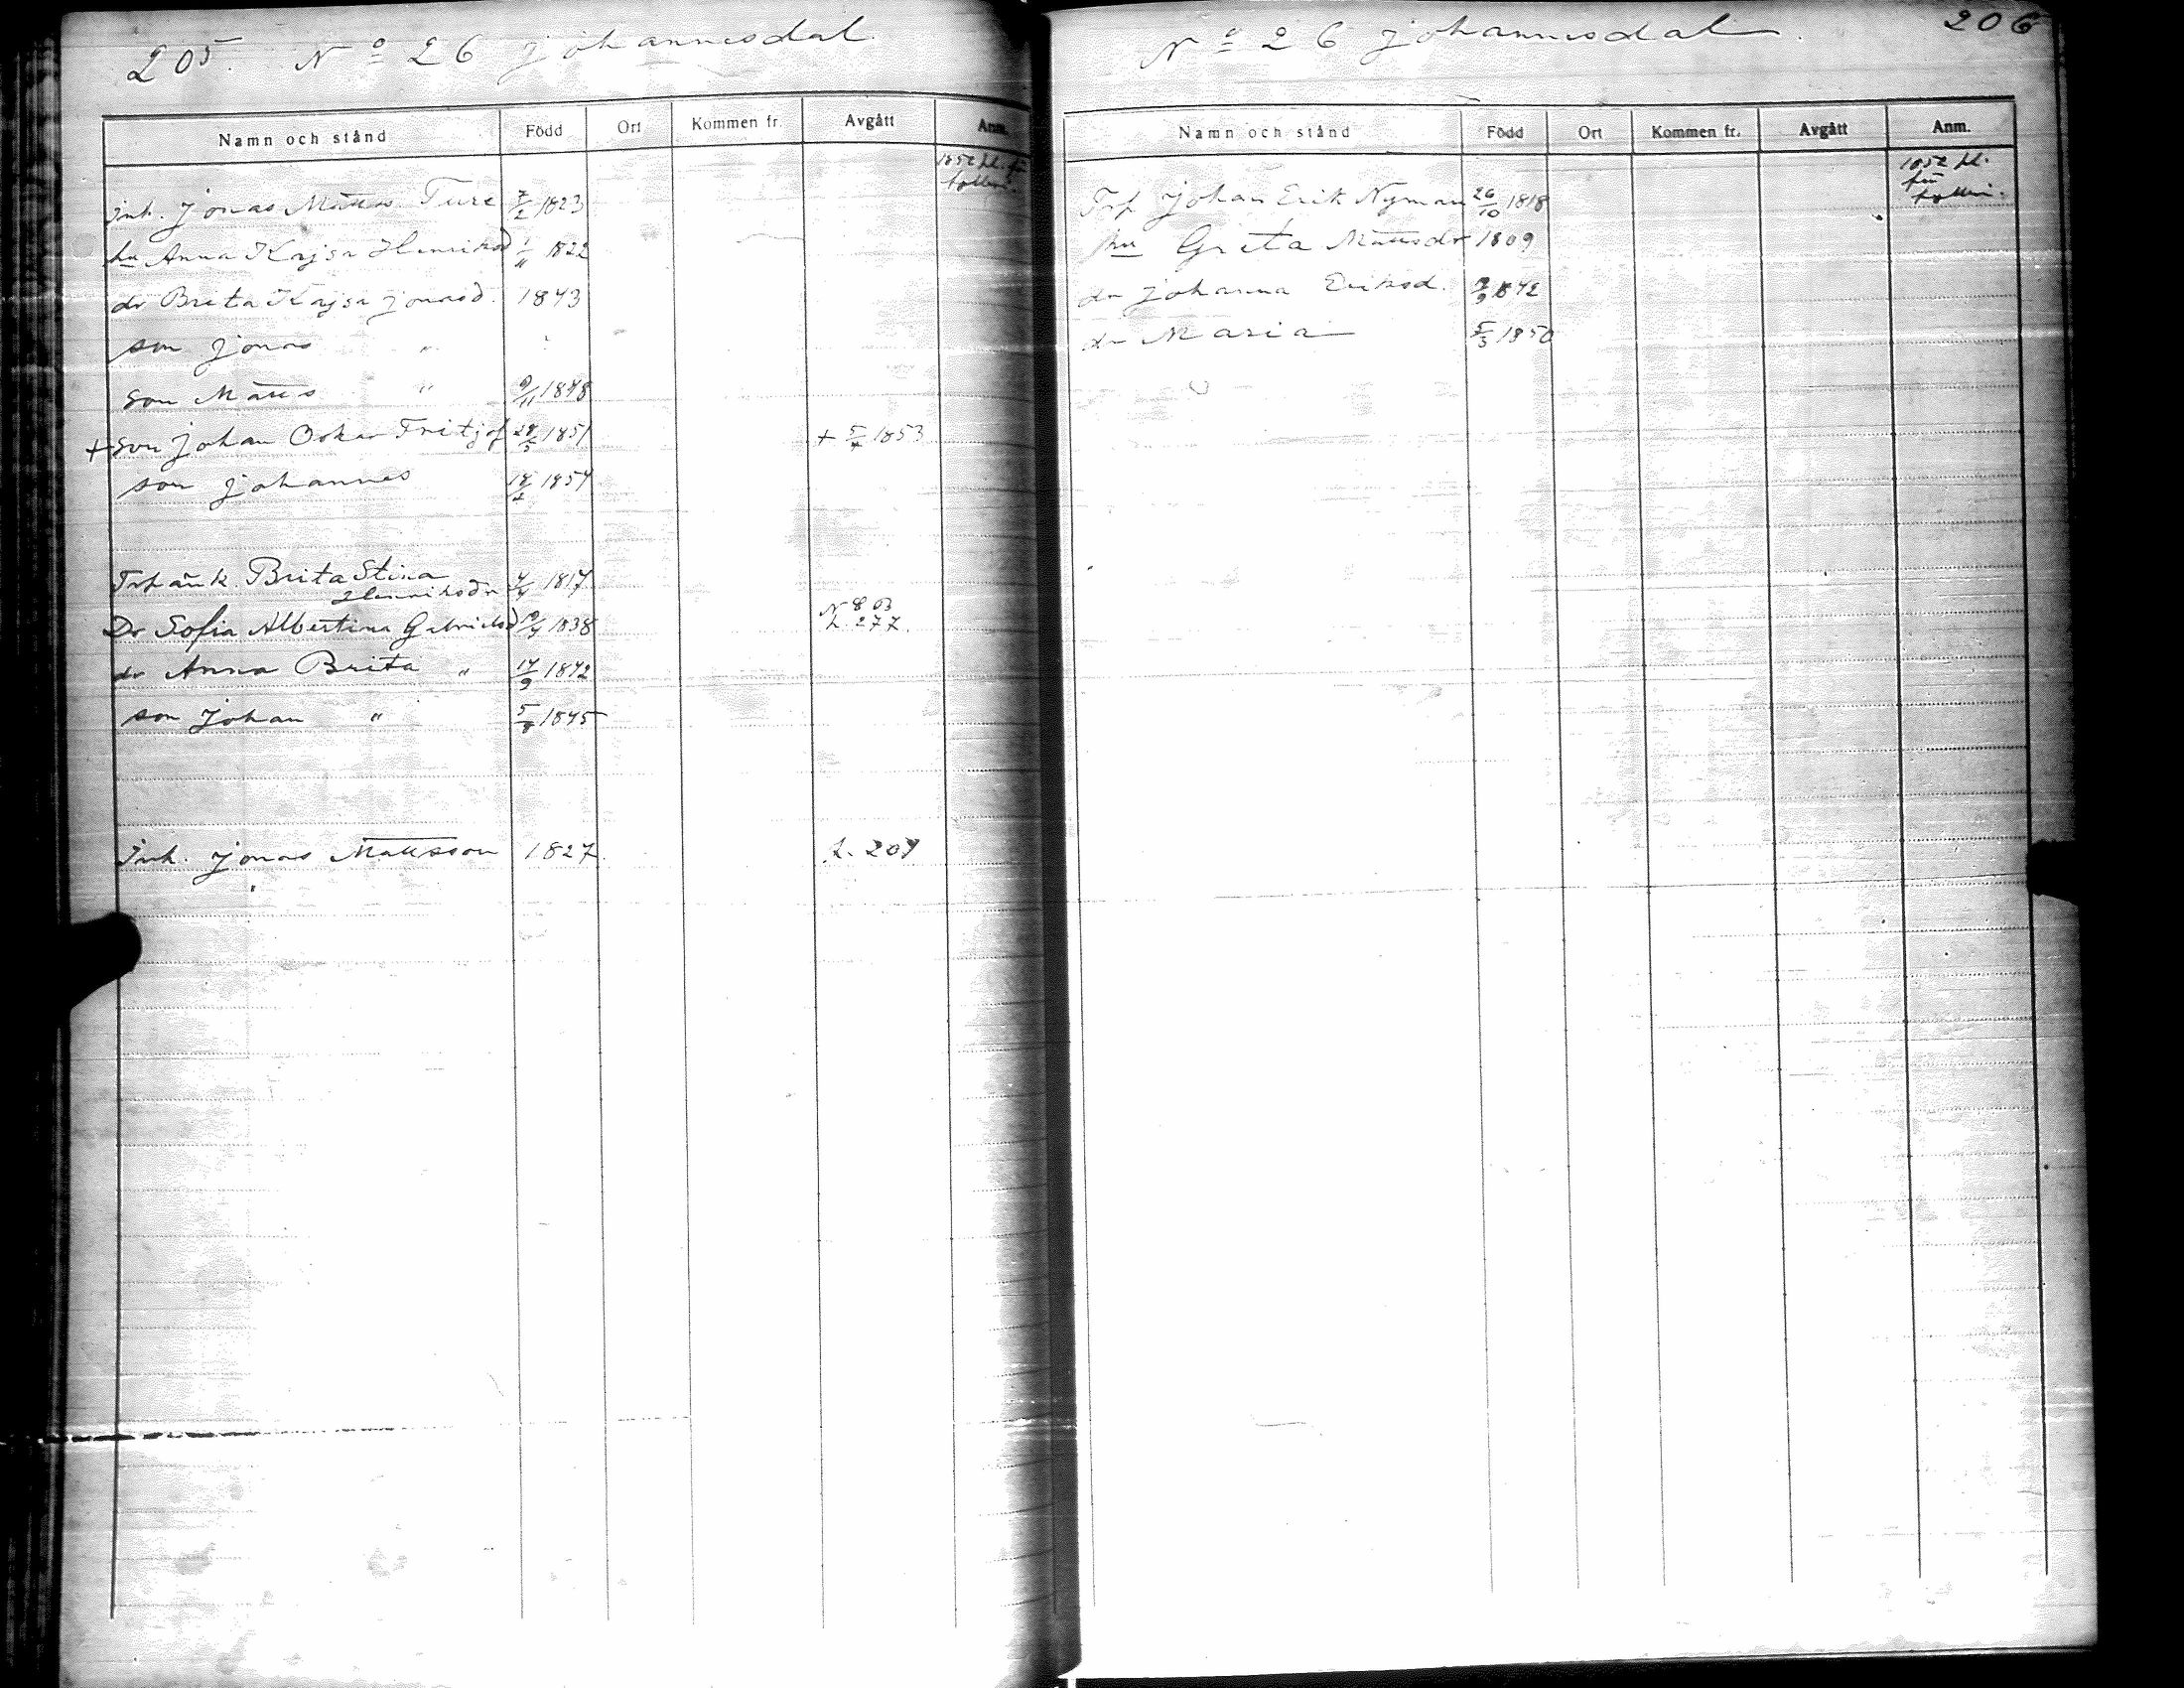 205. No 26 Johannesdal.
Namn och stånd Född Ort Kommen fr. Avgått Anm.
1852 bl. fri
inh. Jonas Mattss. Ture 7/2 1823
hu Anna Kajsa Henriksd 1/11 1822
dr Brita Kajsa Jonasd. 1843
son Jonas "
son Matts " 9/11 1848
+ son Johan Oskar Fritjof 28/5 1851 + 5/7 1853
son Johannes 18/2 1854
Trp änk. Brita Stina
Henriksdr 4/4 1817
Dr Sofia Albertina Gabrielsd 1838 N 8 B
L. 277.
dr Anna Brita " 14/9 1842
son Johan " 5/8 1845
Inh. Jonas Mattsson 1827. L. 209
No 26 Johannesdal. 206
Namn och stånd Född Ort Kommen fr. Avgått Anm.
1852 bl.
Trp Johan Erik Nyman 26/10 1818
hu Greta Mattsdr 1809
dr Johanna Eriksd. 1842
dr Maria 5/3 1850